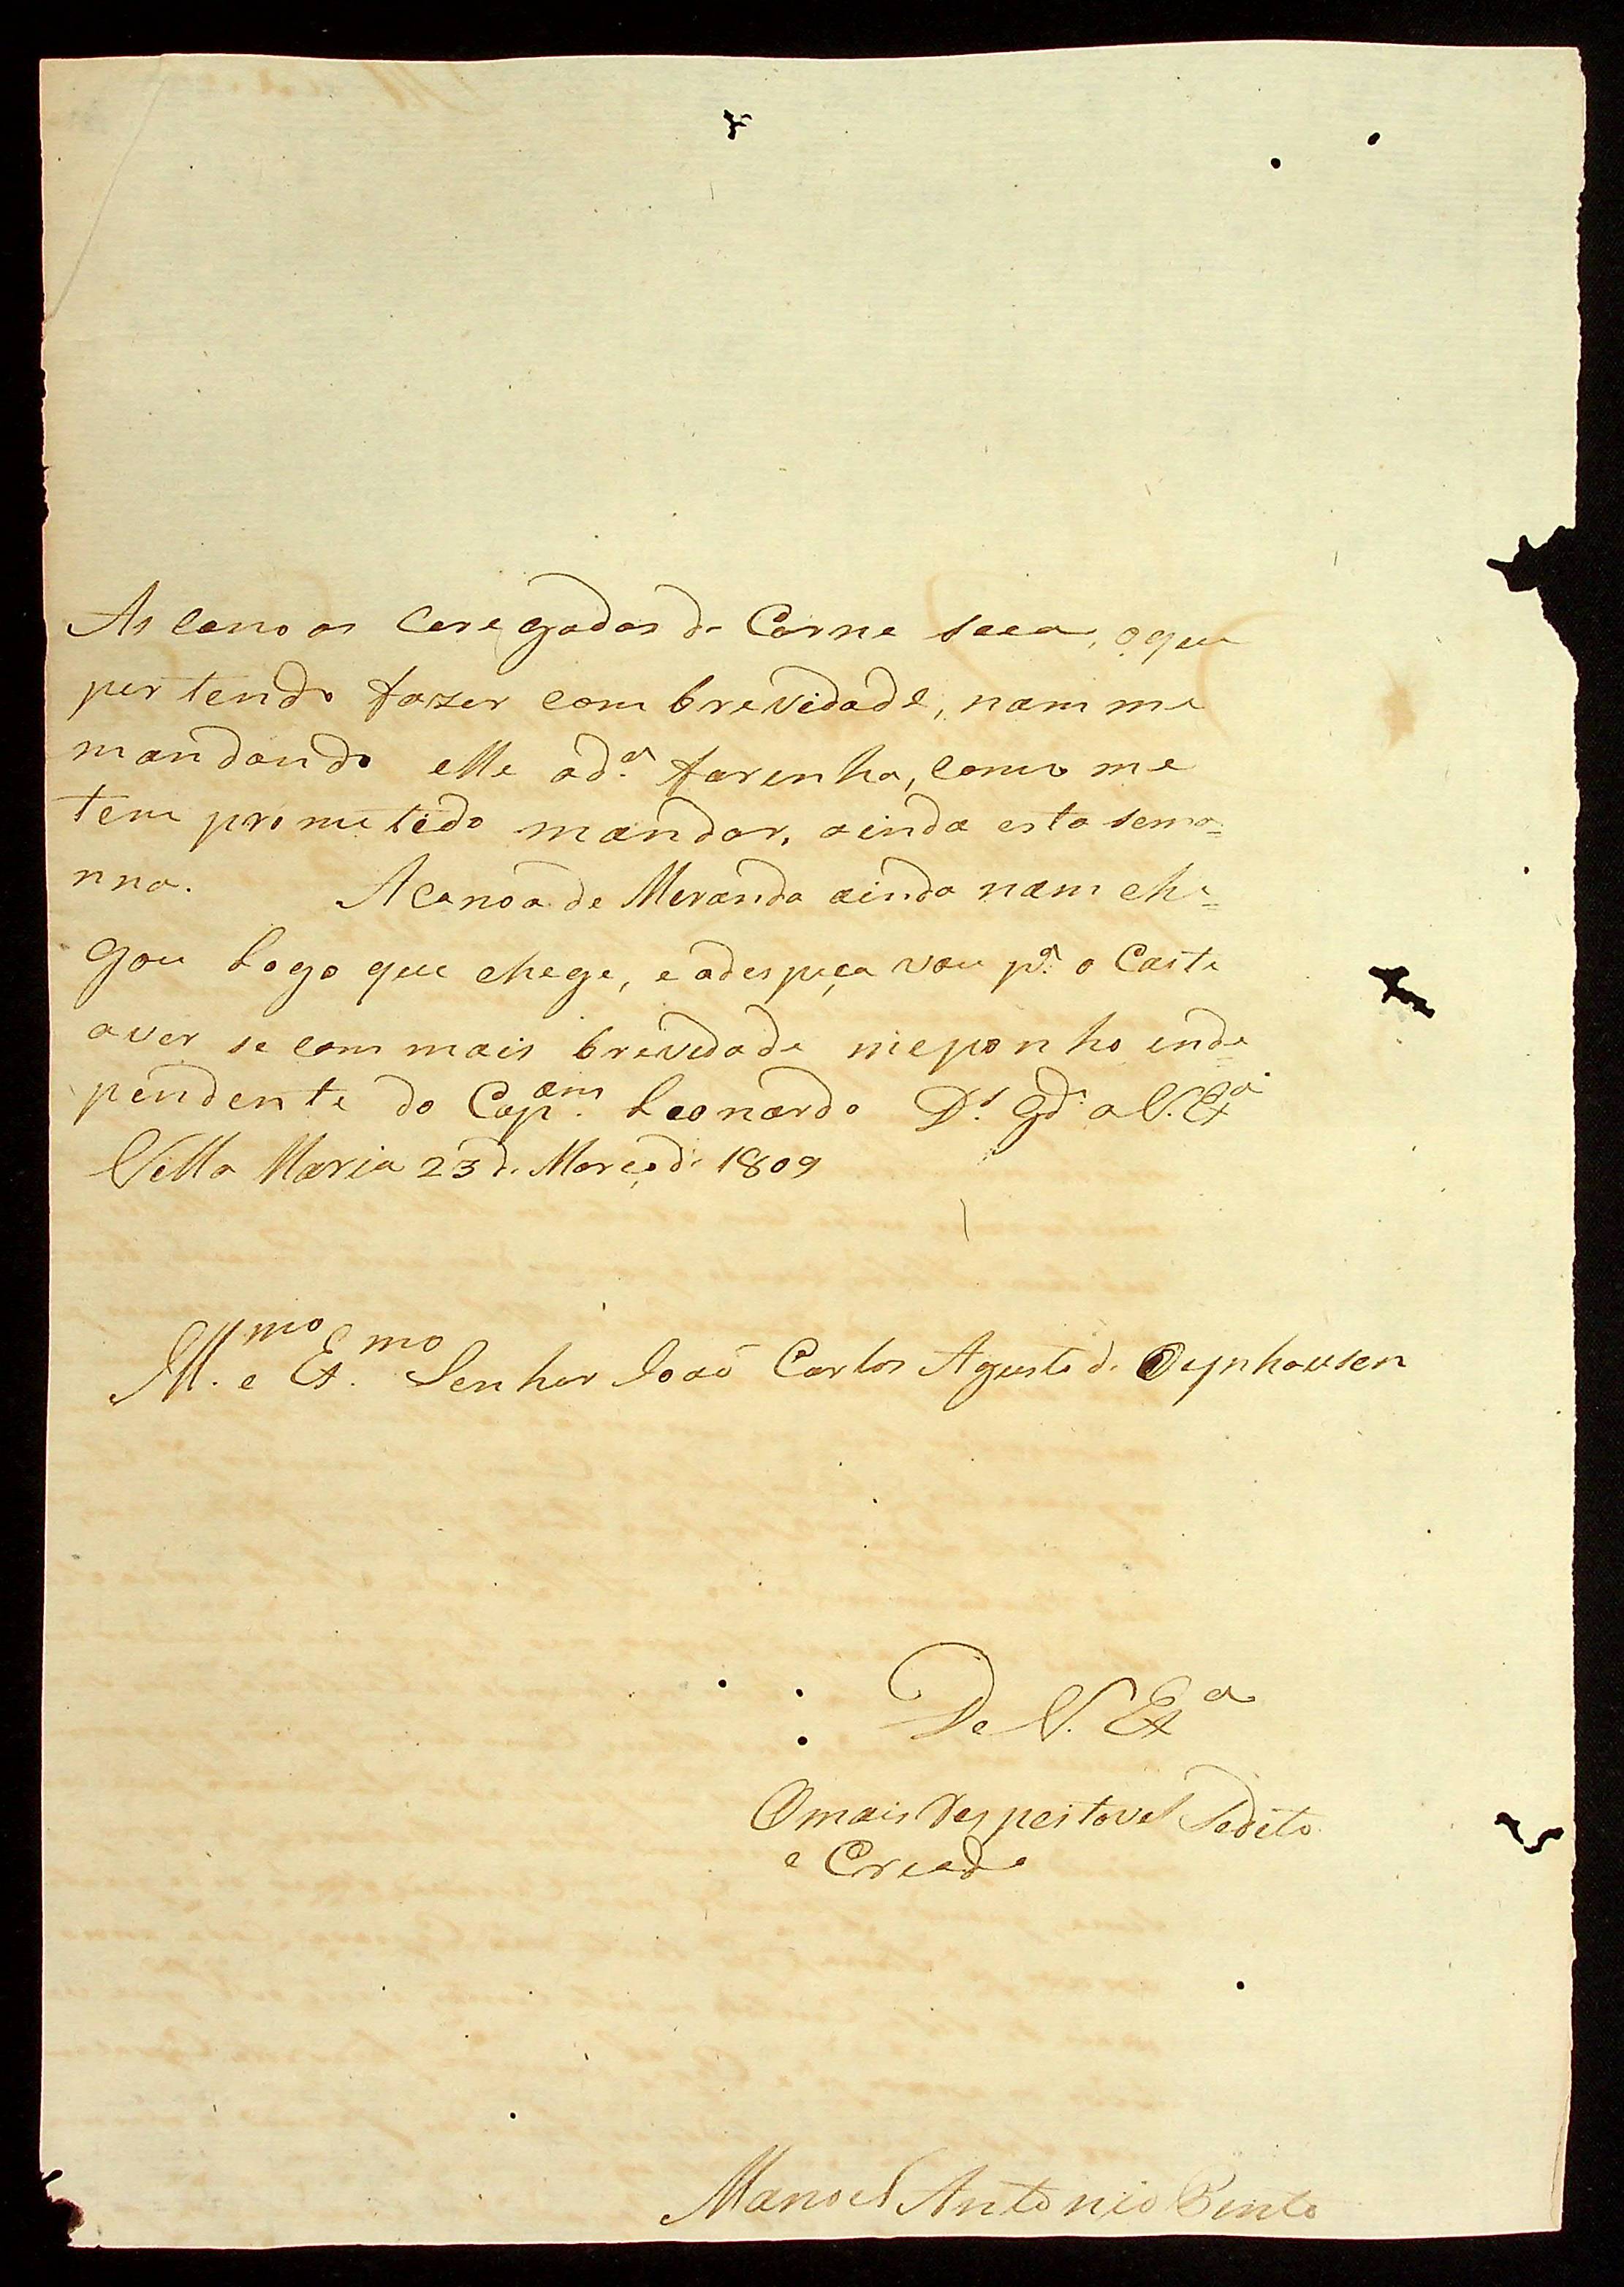 As canoas caregadas de Carne seca, o que
pertendo fazer com brevidade, nam me
mandando elle a d.ª farinha, como me
tem prometido mandar, ainda esta sema=
nna. A canoa de Meranda ainda nam che=
gou Logo que chege, e a despeça vou p.ª o Caste
aver se com mais brevidade me ponho inde=
pendente do Cap.am Leonardo D.s Gd.e a V. Ex.ª
Villa Maria 23 de Março de 1809
Ill.mo e Ex.mo Senhor João Carlos Agusto de Oeynhausen
De V. Ex.ª
O mais Respeitavel Sudito
e Criado
Manoel Antonio Pinto